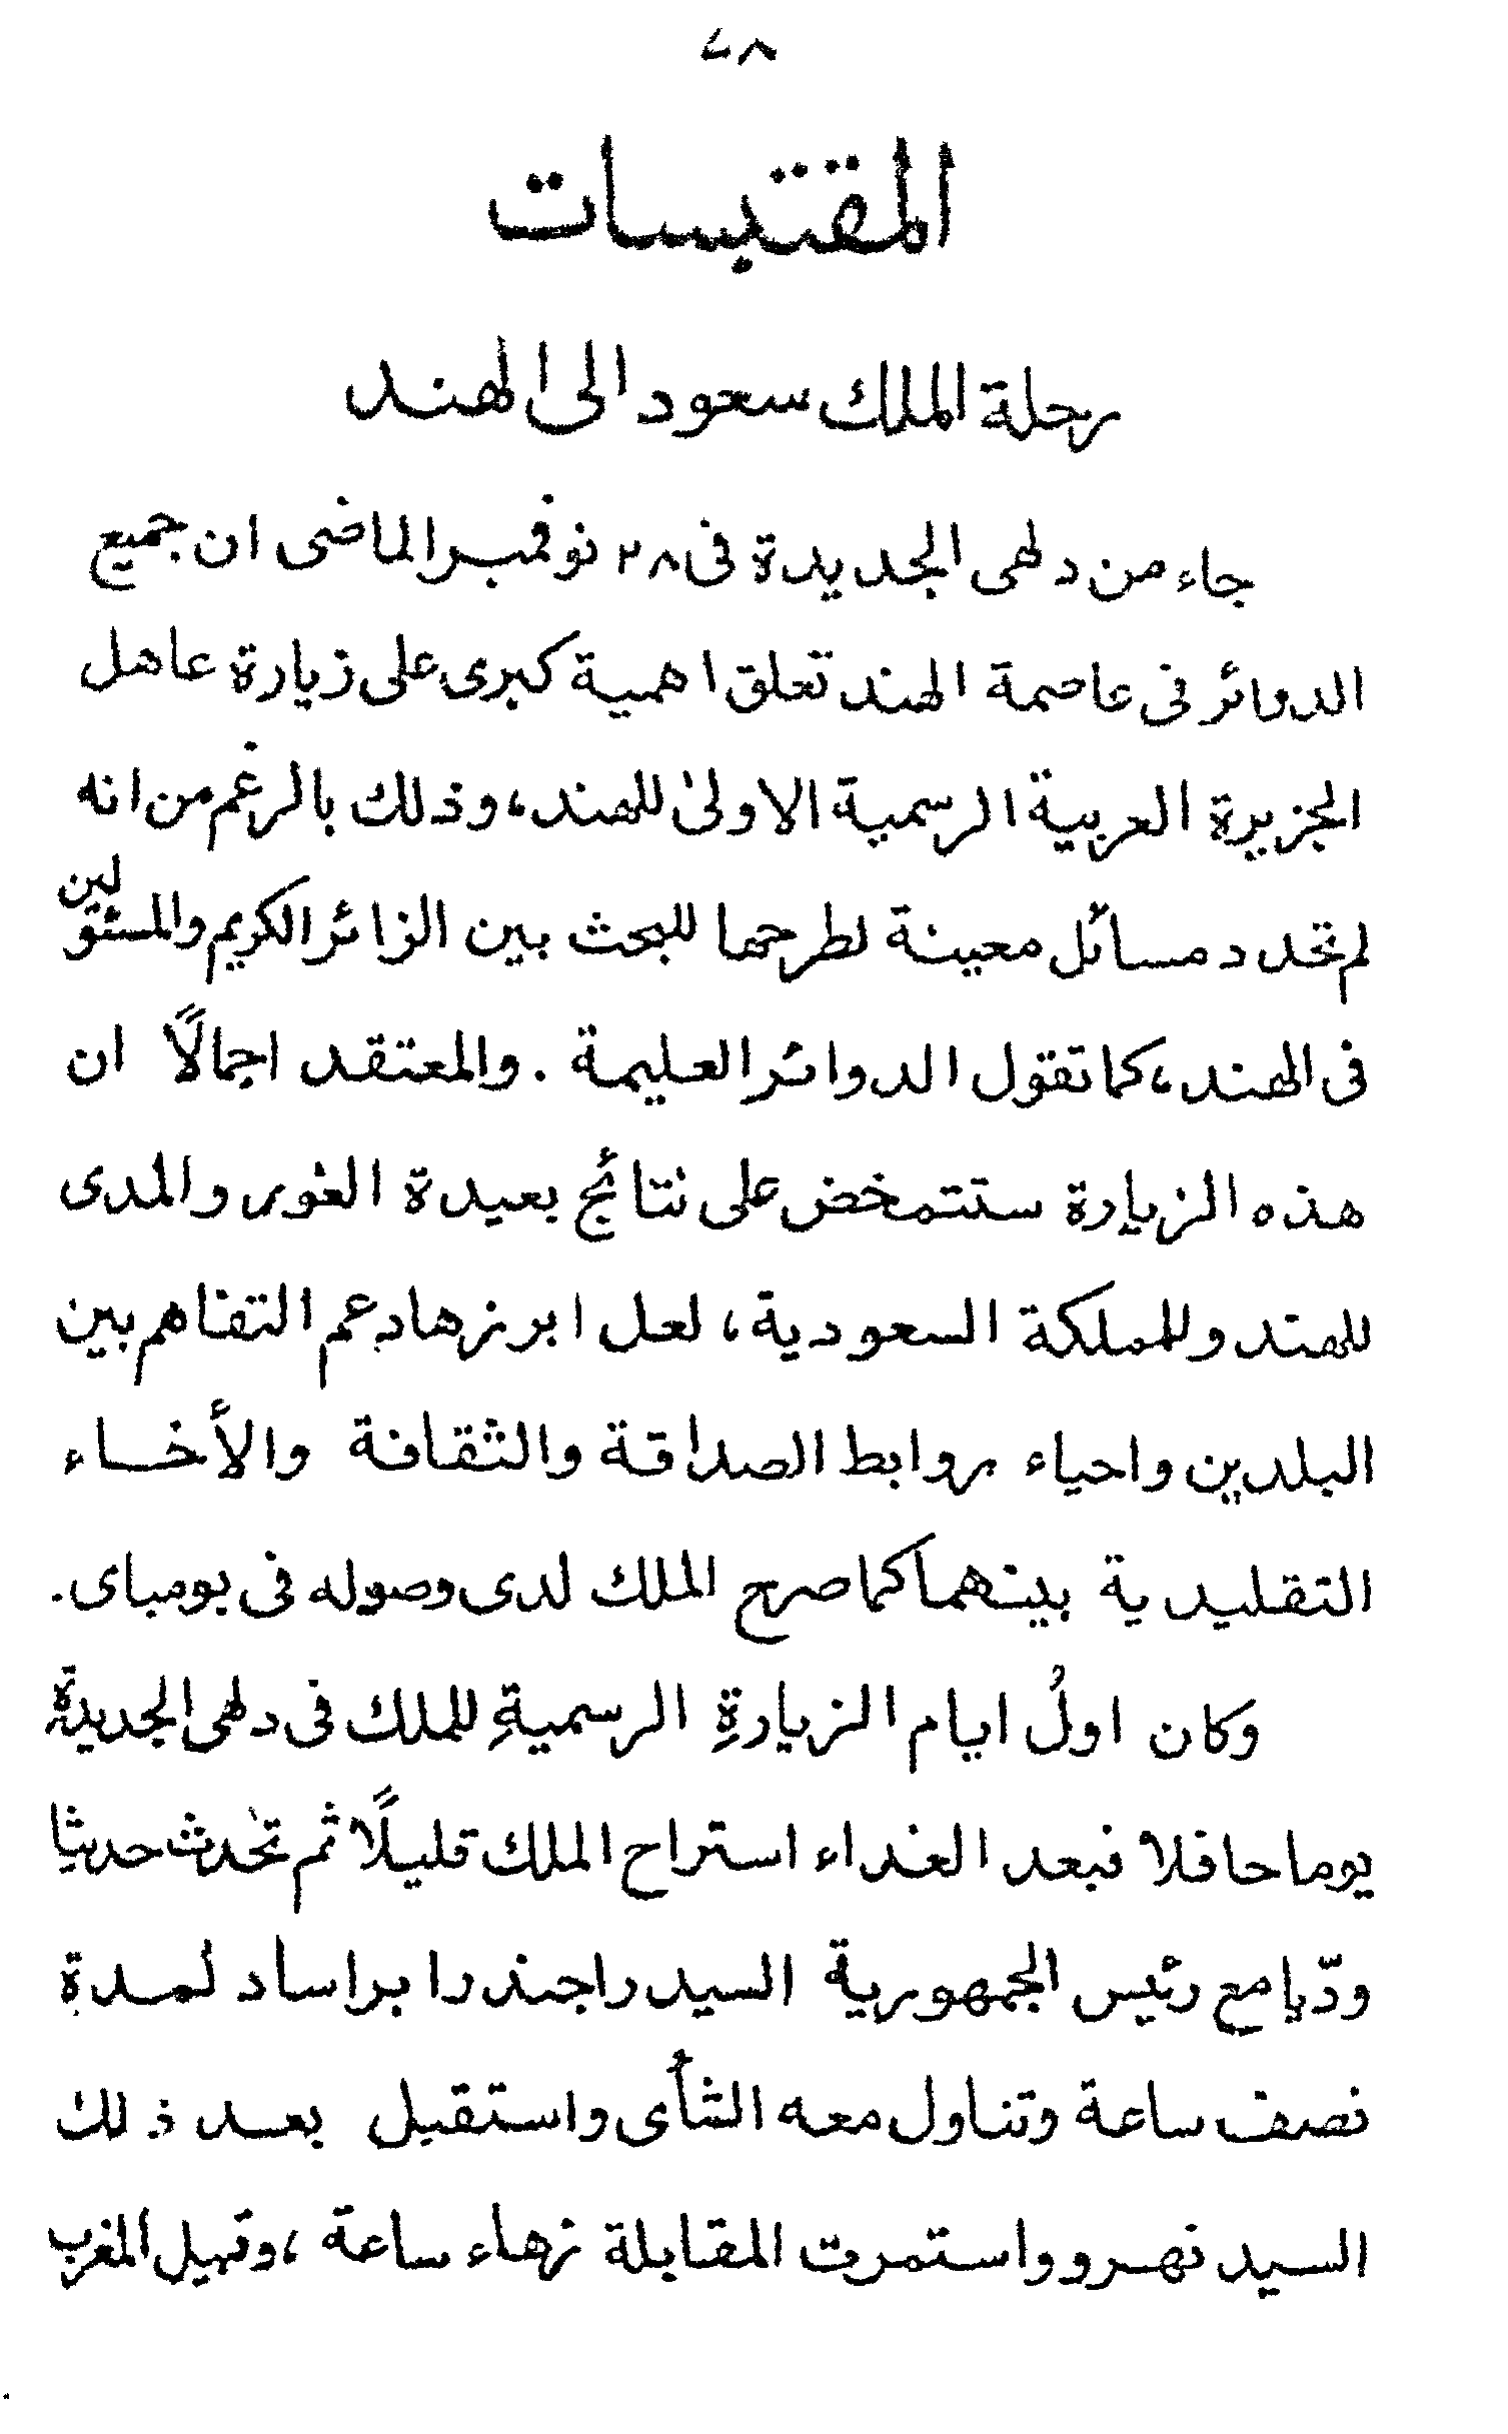 ٤٨
المقتبسات
رحلة الملك سعود الى الهند
جاء من دلهى الجديدة فى ٢٨ نوفمبر الماضى ان جميع
الدوائر فى عاصمة الهند تعلق اهمية كبرى على زيارة عاهل
الجزيرة العربية الرسمية الاولىٰ للهند، وذلك بالرغم من انه
لم تحدد مسائل معينة لطرحها للبحث بين الزائر الكريم والمسئولين
فى الهند، كما تقول الدوائر العليمة . والمعتقد اجمالاً ان
هذه الزيارة ستتمخض على نتائج بعيدة الغور والمدى
للهند وللمملكة السعودية، لعل ابرزها دعم التفاهم بين
البلدين واحياء روابط الصداقة والثقافة والأخاء
التقليدية بينهما كما صرح الملك لدى وصوله فى بومباى.
وكان اولُ ايام الزيارةِ الرسميةِ للملك فى دلهى الجديدة
يوما حافلا فبعد الغداء استراح الملك قليلاً ثم تحدث حديثا
ودّيا مع رئيس الجمهورية السيد راجندرا براساد لمدة
نصف ساعة وتناول معه الشأى واستقبل بعد ذلك
السيد نهرو واستمرت المقابلة زهاء ساعة ،وقبيل المغرب